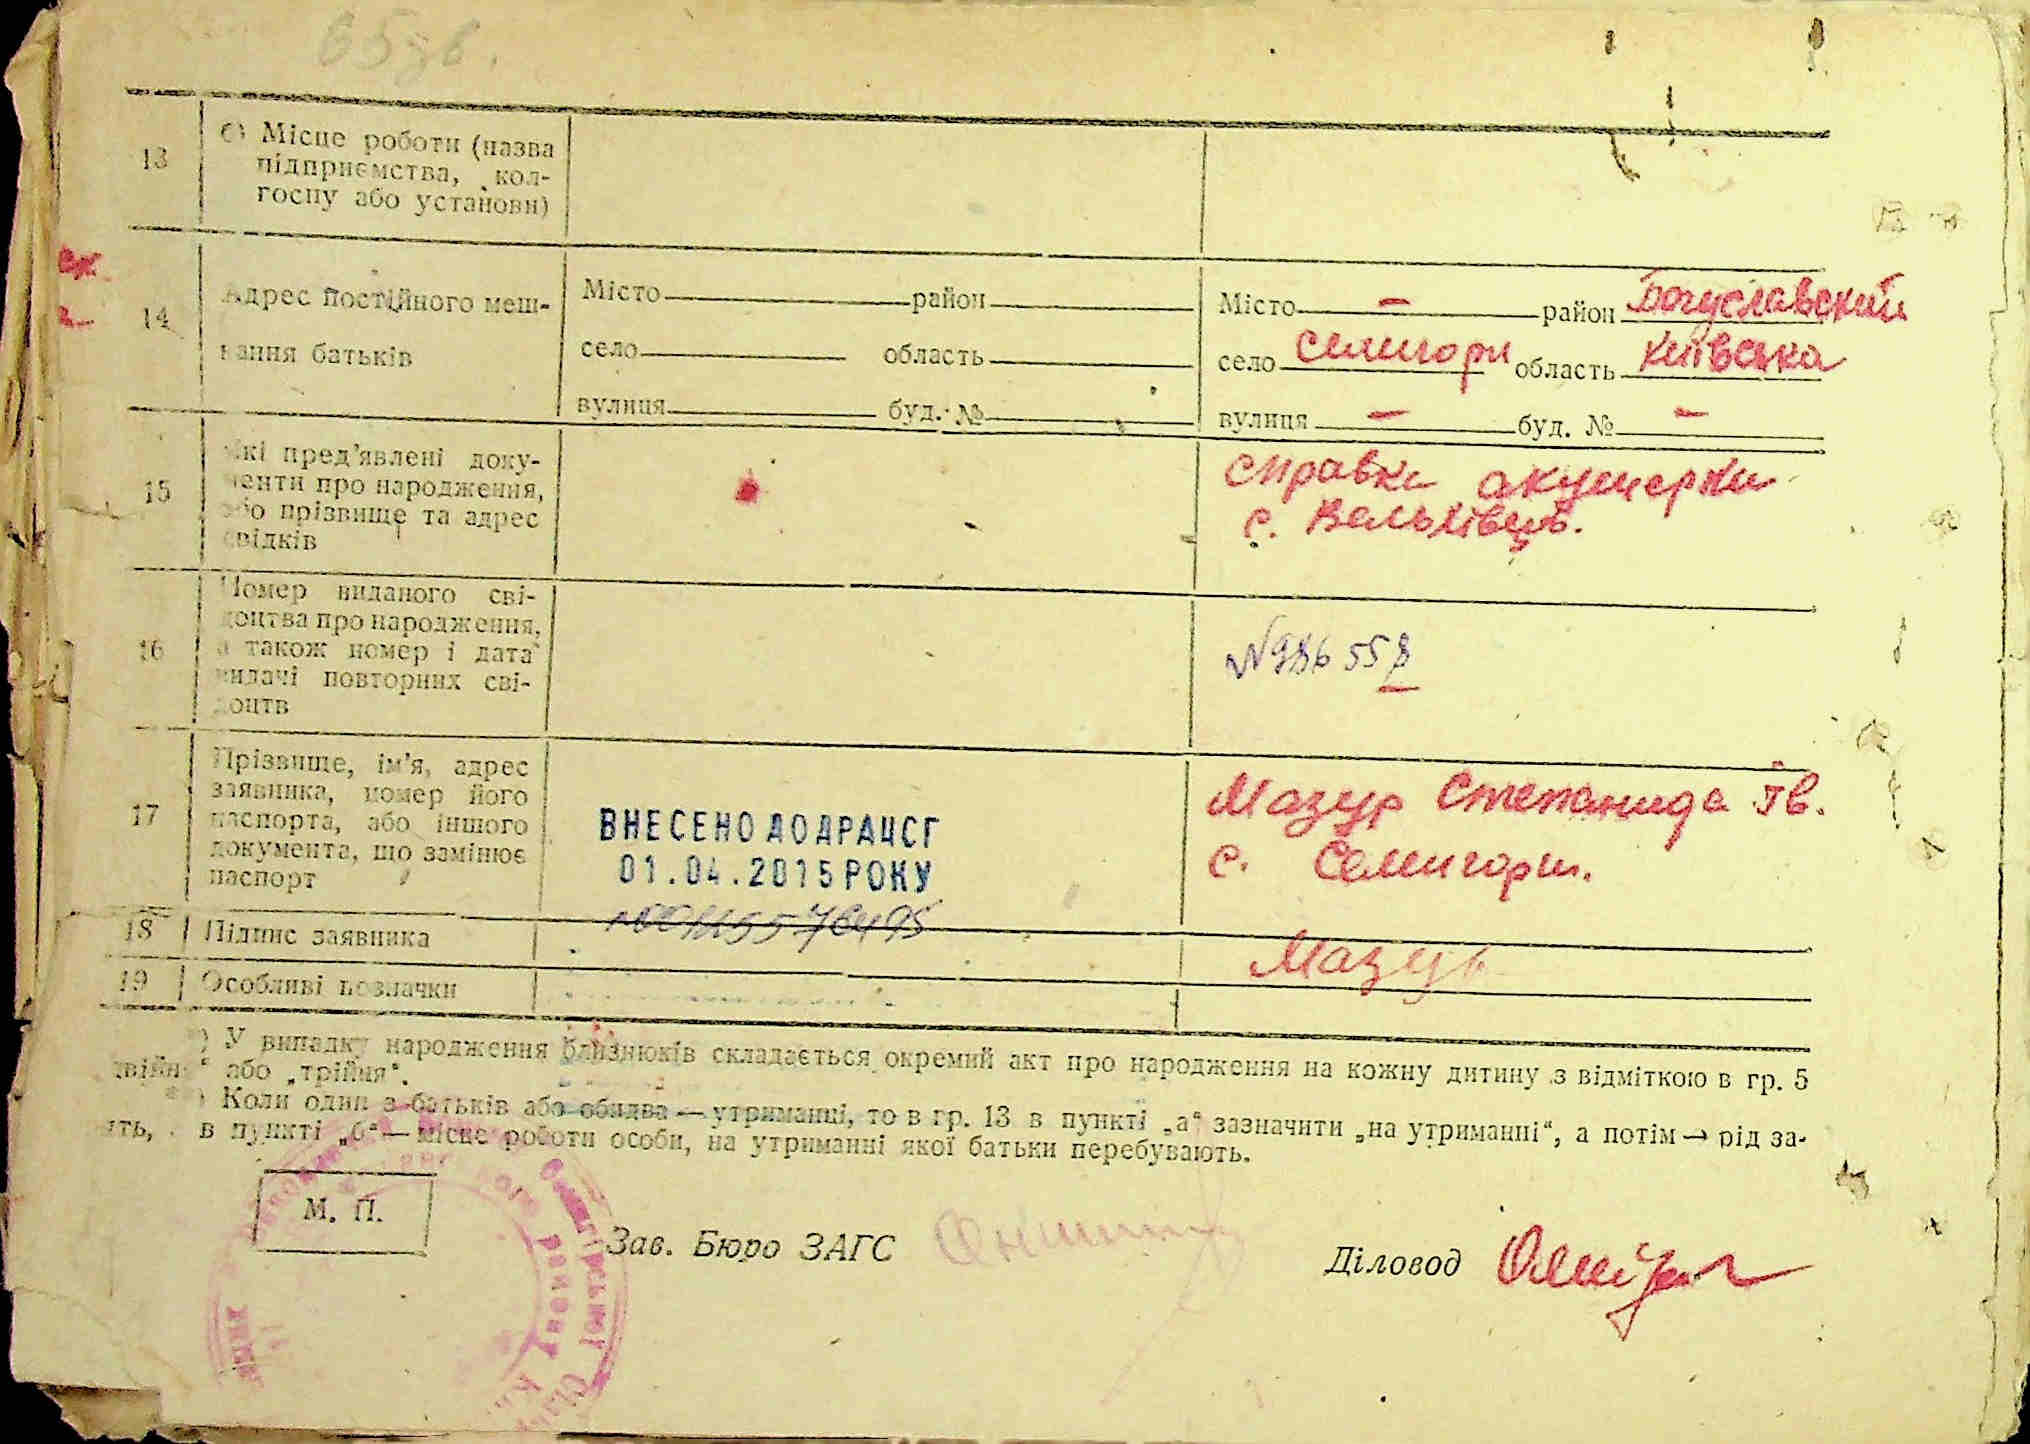 65зв.
13
Місце роботи (назва
підприємства, кол-
госпу або установи)
14
Адрес постійного меш-
кання батьків
Місто район
село область
вулиця буд. №
Місто — район Богуславский
село Семигори область Київська
вулиця — буд. № —
15
Які пред'явлені доку-
менти про народження,
або прізвище та адрес
свідків
справка акушерки
с. Вельхівець.
16
Номер виданого сві-
доцтва про народження,
а також номер і дата
видачі повторних сві-
доцтв
№986558
17
Прізвище, ім'я, адрес
заявника, номер його
паспорта, або іншого
документа, що замінює
паспорт
ВНЕСЕНО ДО ДРАЦСГ
01.04.2015 РОКУ
Мазур Степанида Ів.
с. Семигори.
18 Підпис заявника
Мазур
19 Особливі позначки
) У випадку народження близнюків складається окремий акт про народження на кожну дитину з відміткою в гр. 5
двійня“ або „трійня“.
) Коли один з батьків або обидва — утриманці, то в гр. 13 в пункті „а“ зазначити „на утриманні“, а потім — рід за-
ять, в пункті „б“ — місце роботи особи, на утриманні якої батьки перебувають.
М. П.
Зав. Бюро ЗАГС
Діловод